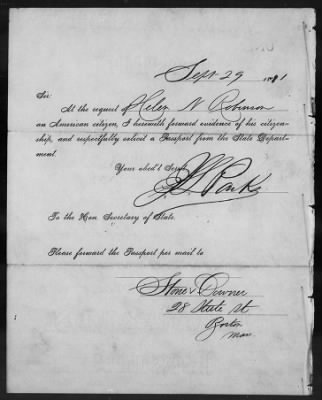 Sept 29 1881
Sir:
At the request of Helen N Robinson
an American citizen, I herewith forward evidence of his citizen-
ship, and respectfully solicit a Passport from the State Depart-
ment.
Your obed't Serv't
Parks
To the Hon Secretary of State.
Please forward the Passport per mail to
Stone & Downer
28 State St
Boston
Mass